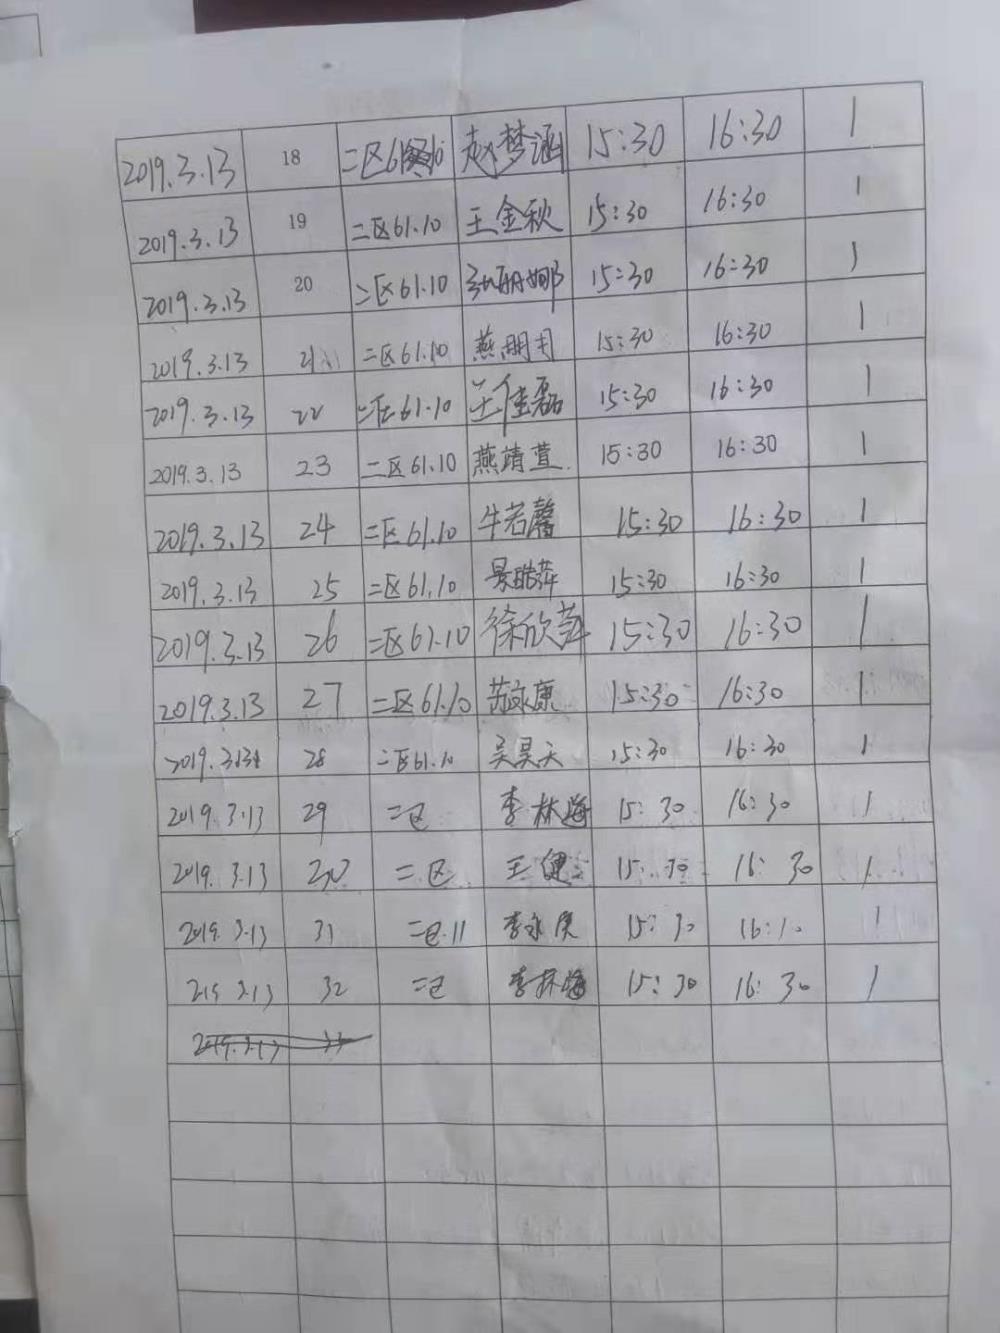 2019.3.13 18 二区 赵梦涵 15:30 16:30 1
2019.3.13 19 二区61.10 王金秋 15:30 16:30 1
2019.3.13 20 二区61.10 15:30 16:30 1
2019.3.13 21 二区61.10 燕明月 15:30 16:30 1
2019.3.13 22 二区61.10 王佳磊 15:30 16:30 1
2019.3.13 23 二区61.10 燕靖萱 15:30 16:30 1
2019.3.13 24 二区61.10 牛若馨 15:30 16:30 1
2019.3.13 25 二区61.10 15:30 16:30 1
2019.3.13 26 二区61.10 徐欣萍 15:30 16:30 1
2019.3.13 27 二区61.10 苏永康 15:30 16:30 1
2019.3.13 28 二区61.10 吴昊天 15:30 16:30 1
2019.3.13 29 二区 李林海 15:30 16:30 1
2019.3.13 30 二区 王健 15:30 16:30 1
2019.3.13 31 二区.11 15:30 16:10 1
219 3.13 32 二区 李林海 15:30 16:30 1
2019.3.13 33